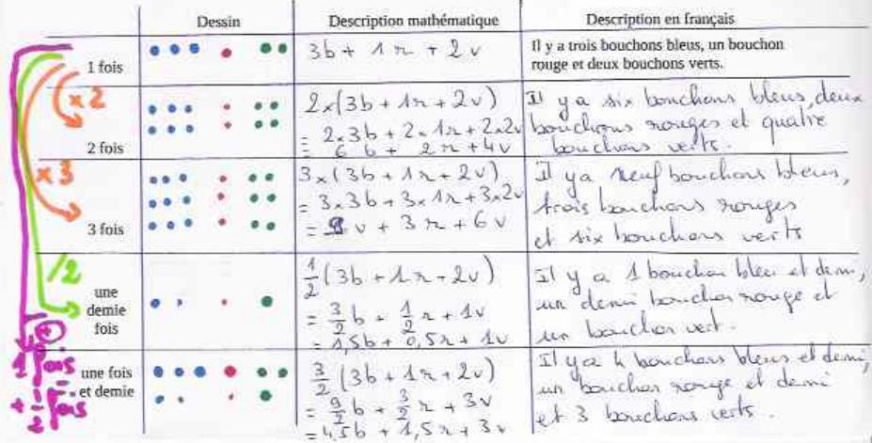 Dessin
Description mathématique
Description en français
1 fois
3b + 1r + 2v
Il y a trois bouchons bleus, un bouchon
rouge et deux bouchons verts.
×2
2 fois
2×(3b + 1r + 2v)
= 2×3b + 2×1r + 2×2v
= 6b + 2r + 4v
Il y a six bouchons bleus, deux
bouchons rouges et quatre
bouchons verts.
×3
3 fois
3×(3b + 1r + 2v)
= 3×3b + 3×1r + 3×2v
= 9v + 3r + 6v
Il y a neuf bouchons bleus,
trois bouchons rouges
et six bouchons verts
/2
une
demie
fois
1/2 (3b + 1r + 2v)
= 3/2 b + 1/2 r + 1v
= 1,5b + 0,5r + 1v
Il y a 1 bouchon bleu et demi,
un demi bouchon rouge et
un bouchon vert.
+
1 fois
+ 1/2 fois
une fois
et demie
3/2 (3b + 1r + 2v)
= 9/2 b + 3/2 r + 3v
= 4,5b + 1,5r + 3v
Il y a 4 bouchons bleus et demi,
un bouchon rouge et demi
et 3 bouchons verts.